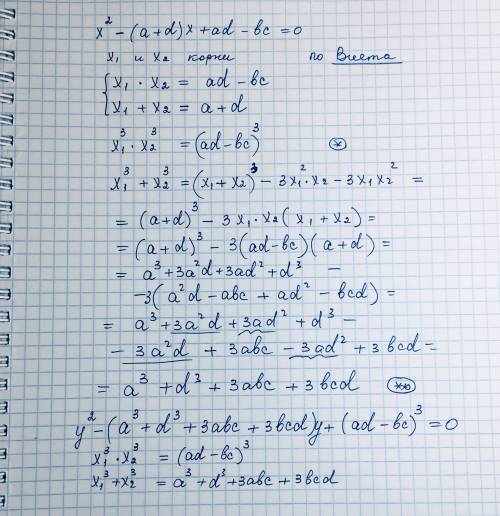 x² - (a+d)x + ad - bc = 0
x₁ и x₂ корни по Виета
{ x₁ · x₂ = ad - bc
{ x₁ + x₂ = a + d
x₁³ · x₂³ = (ad - bc)³ (*)
x₁³ + x₂³ = (x₁ + x₂)³ - 3x₁²·x₂ - 3x₁x₂² =
= (a+d)³ - 3x₁·x₂(x₁ + x₂) =
= (a+d)³ - 3(ad-bc)(a+d) =
= a³ + 3a²d + 3ad² + d³ -
-3(a²d - abc + ad² - bcd) =
= a³ + 3a²d + 3ad² + d³ -
- 3a²d + 3abc - 3ad² + 3bcd =
= a³ + d³ + 3abc + 3bcd (**)
y² - (a³ + d³ + 3abc + 3bcd)y + (ad - bc)³ = 0
x₁³ · x₂³ = (ad - bc)³
x₁³ + x₂³ = a³ + d³ + 3abc + 3bcd